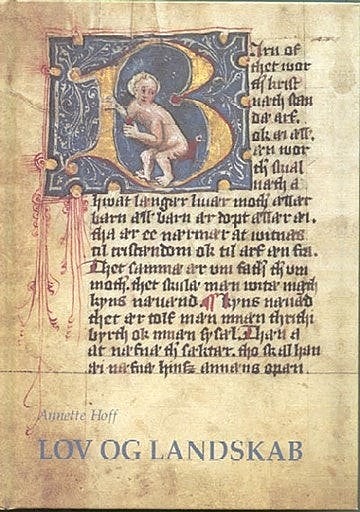 Barn of
thet wor
th krist
næth stan
dæ arf.
ok æi ællæ.
æn wor
th skial
næth a
hwat længær liuær moth ællær
barn æll barn ær døpt æller æi.
tha ær ee nærmær at witnæ
til cristændom ok til arf æn fra.
Thet sammæ ær um fath thum
moth. thet skulæ mæn witæ mæth
kyns næuænd. kyns næuænd
thet ær tolf mæn innæn thrithi
byrth ok innæn sysæl. Than a
at næfnæ th sæktær. tho skal han
æi næfnæ hinsz annæns opæn
Annette Hoff
LOV OG LANDSKAB